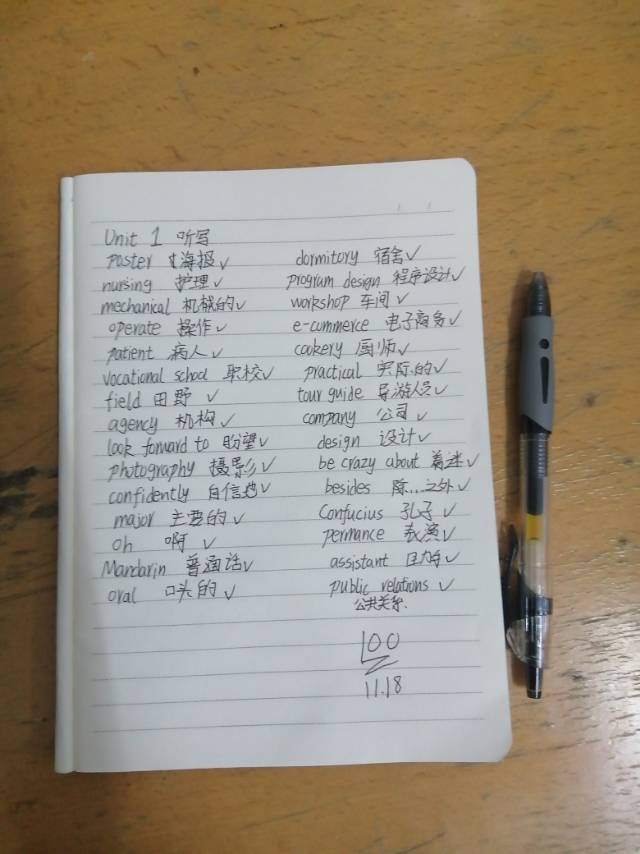 Unit 1 听写
poster 海报✓
nursing 护理✓
mechanical 机械的✓
operate 操作✓
patient 病人✓
vocational school 职校✓
field 田野 ✓
agency 机构✓
look forward to 盼望✓
photography 摄影✓
confidently 自信地✓
major 主要的✓
oh 啊 ✓
Mandarin 普通话✓
oral 口头的✓
dormitory 宿舍✓
program design 程序设计✓
workshop 车间✓
e-commerce 电子商务✓
cookery 厨师✓
practical 实际的✓
tour guide 导游人员✓
company 公司✓
design 设计✓
be crazy about 着迷✓
besides 除...之外✓
Confucius 孔子✓
permance 表演✓
assistant ✓
public relations ✓
公共关系.
100
11.18